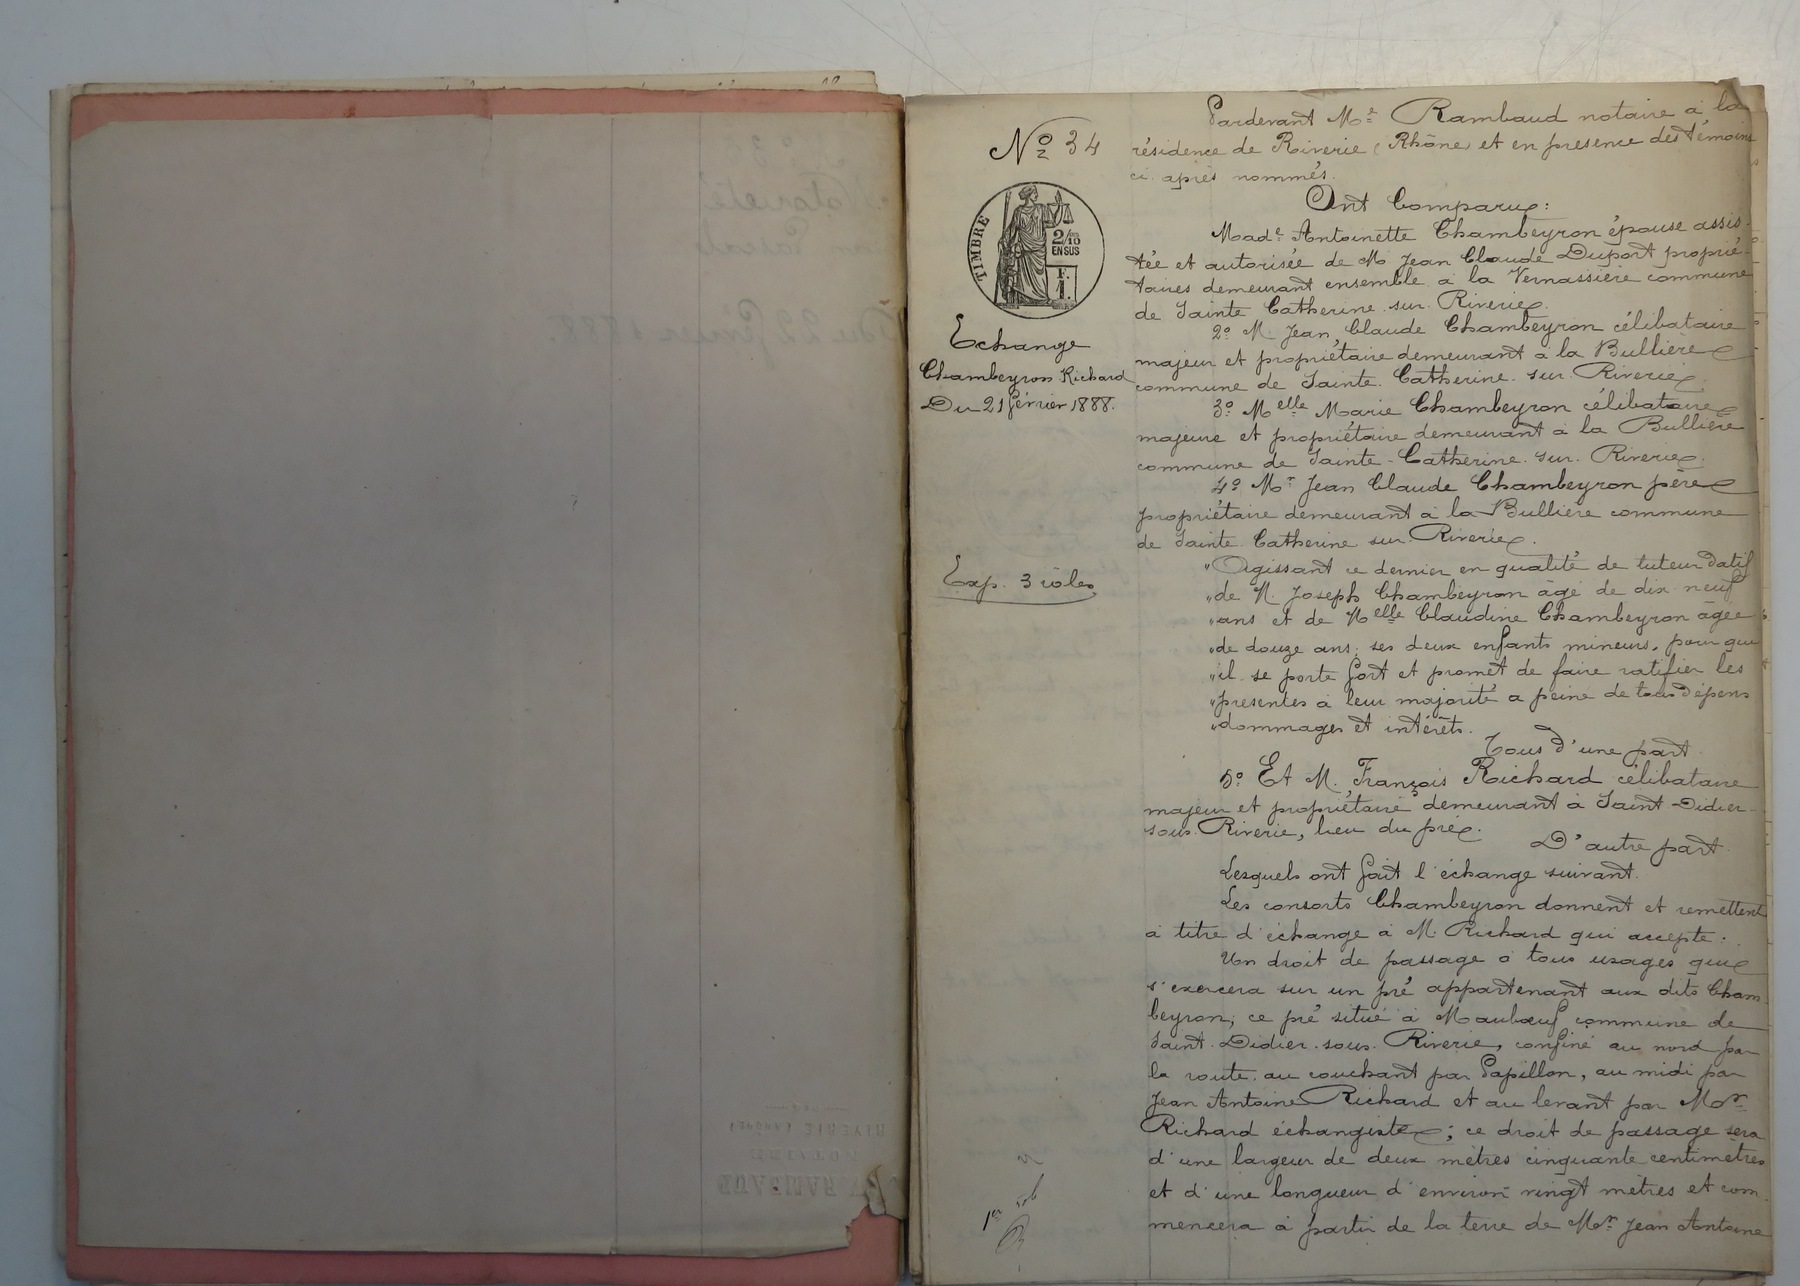 N° 34
TIMBRE
2/10
EN SUS
F.
1.
Echange
Chambeyron Richard
Du 21 février 1888.
Exp. 3 rôles
Pardevant Me Rambaud notaire à la
résidence de Riverie (Rhône) et en présence des témoins
ci après nommés.
Ont Comparu:
Made Antoinette Chambeyron épouse assis-
tée et autorisée de M Jean Claude Duport proprié-
taires demeurant ensemble à la Vernassière commune
de Sainte Catherine sur Riverie.
2° M. Jean Claude Chambeyron célibataire
majeur et propriétaire demeurant à la Bullière
commune de Sainte Catherine sur Riverie.
3° Melle Marie Chambeyron célibataire
majeure et propriétaire demeurant à la Bullière
commune de Sainte-Catherine sur Riverie.
4° Mr Jean Claude Chambeyron père
propriétaire demeurant à la Bullière commune
de Sainte Catherine sur Riverie.
"Agissant ce dernier en qualité de tuteur datif
"de M. Joseph Chambeyron âgé de dix neuf
"ans et de Melle Claudine Chambeyron âgée
"de douze ans, ses deux enfants mineurs, pour qui
"il se porte fort et promet de faire ratifier les
"présentes à leur majorité a peine de tous dépens
"dommages et intérêts.
Tous d'une part
5° Et M. François Richard célibataire
majeur et propriétaire demeurant à Saint-Didier-
sous Riverie, lieu du pré.
D'autre part.
Lesquels ont fait l'échange suivant.
Les consorts Chambeyron donnent et remettent
à titre d'échange à M. Richard qui accepte:
Un droit de passage à tous usages que
s'exercera sur un pré appartenant aux dits Cham-
beyron; ce pré situé à Maubœuf commune de
Saint Didier sous Riverie, confiné au nord par
la route, au couchant par Papillon, au midi par
Jean Antoine Richard et au levant par Mr
Richard échangiste; ce droit de passage sera
d'une largeur de deux mètres cinquante centimètres
et d'une longueur d'environ vingt mètres et com-
mencera à partir de la terre de Mr Jean Antoine
1er